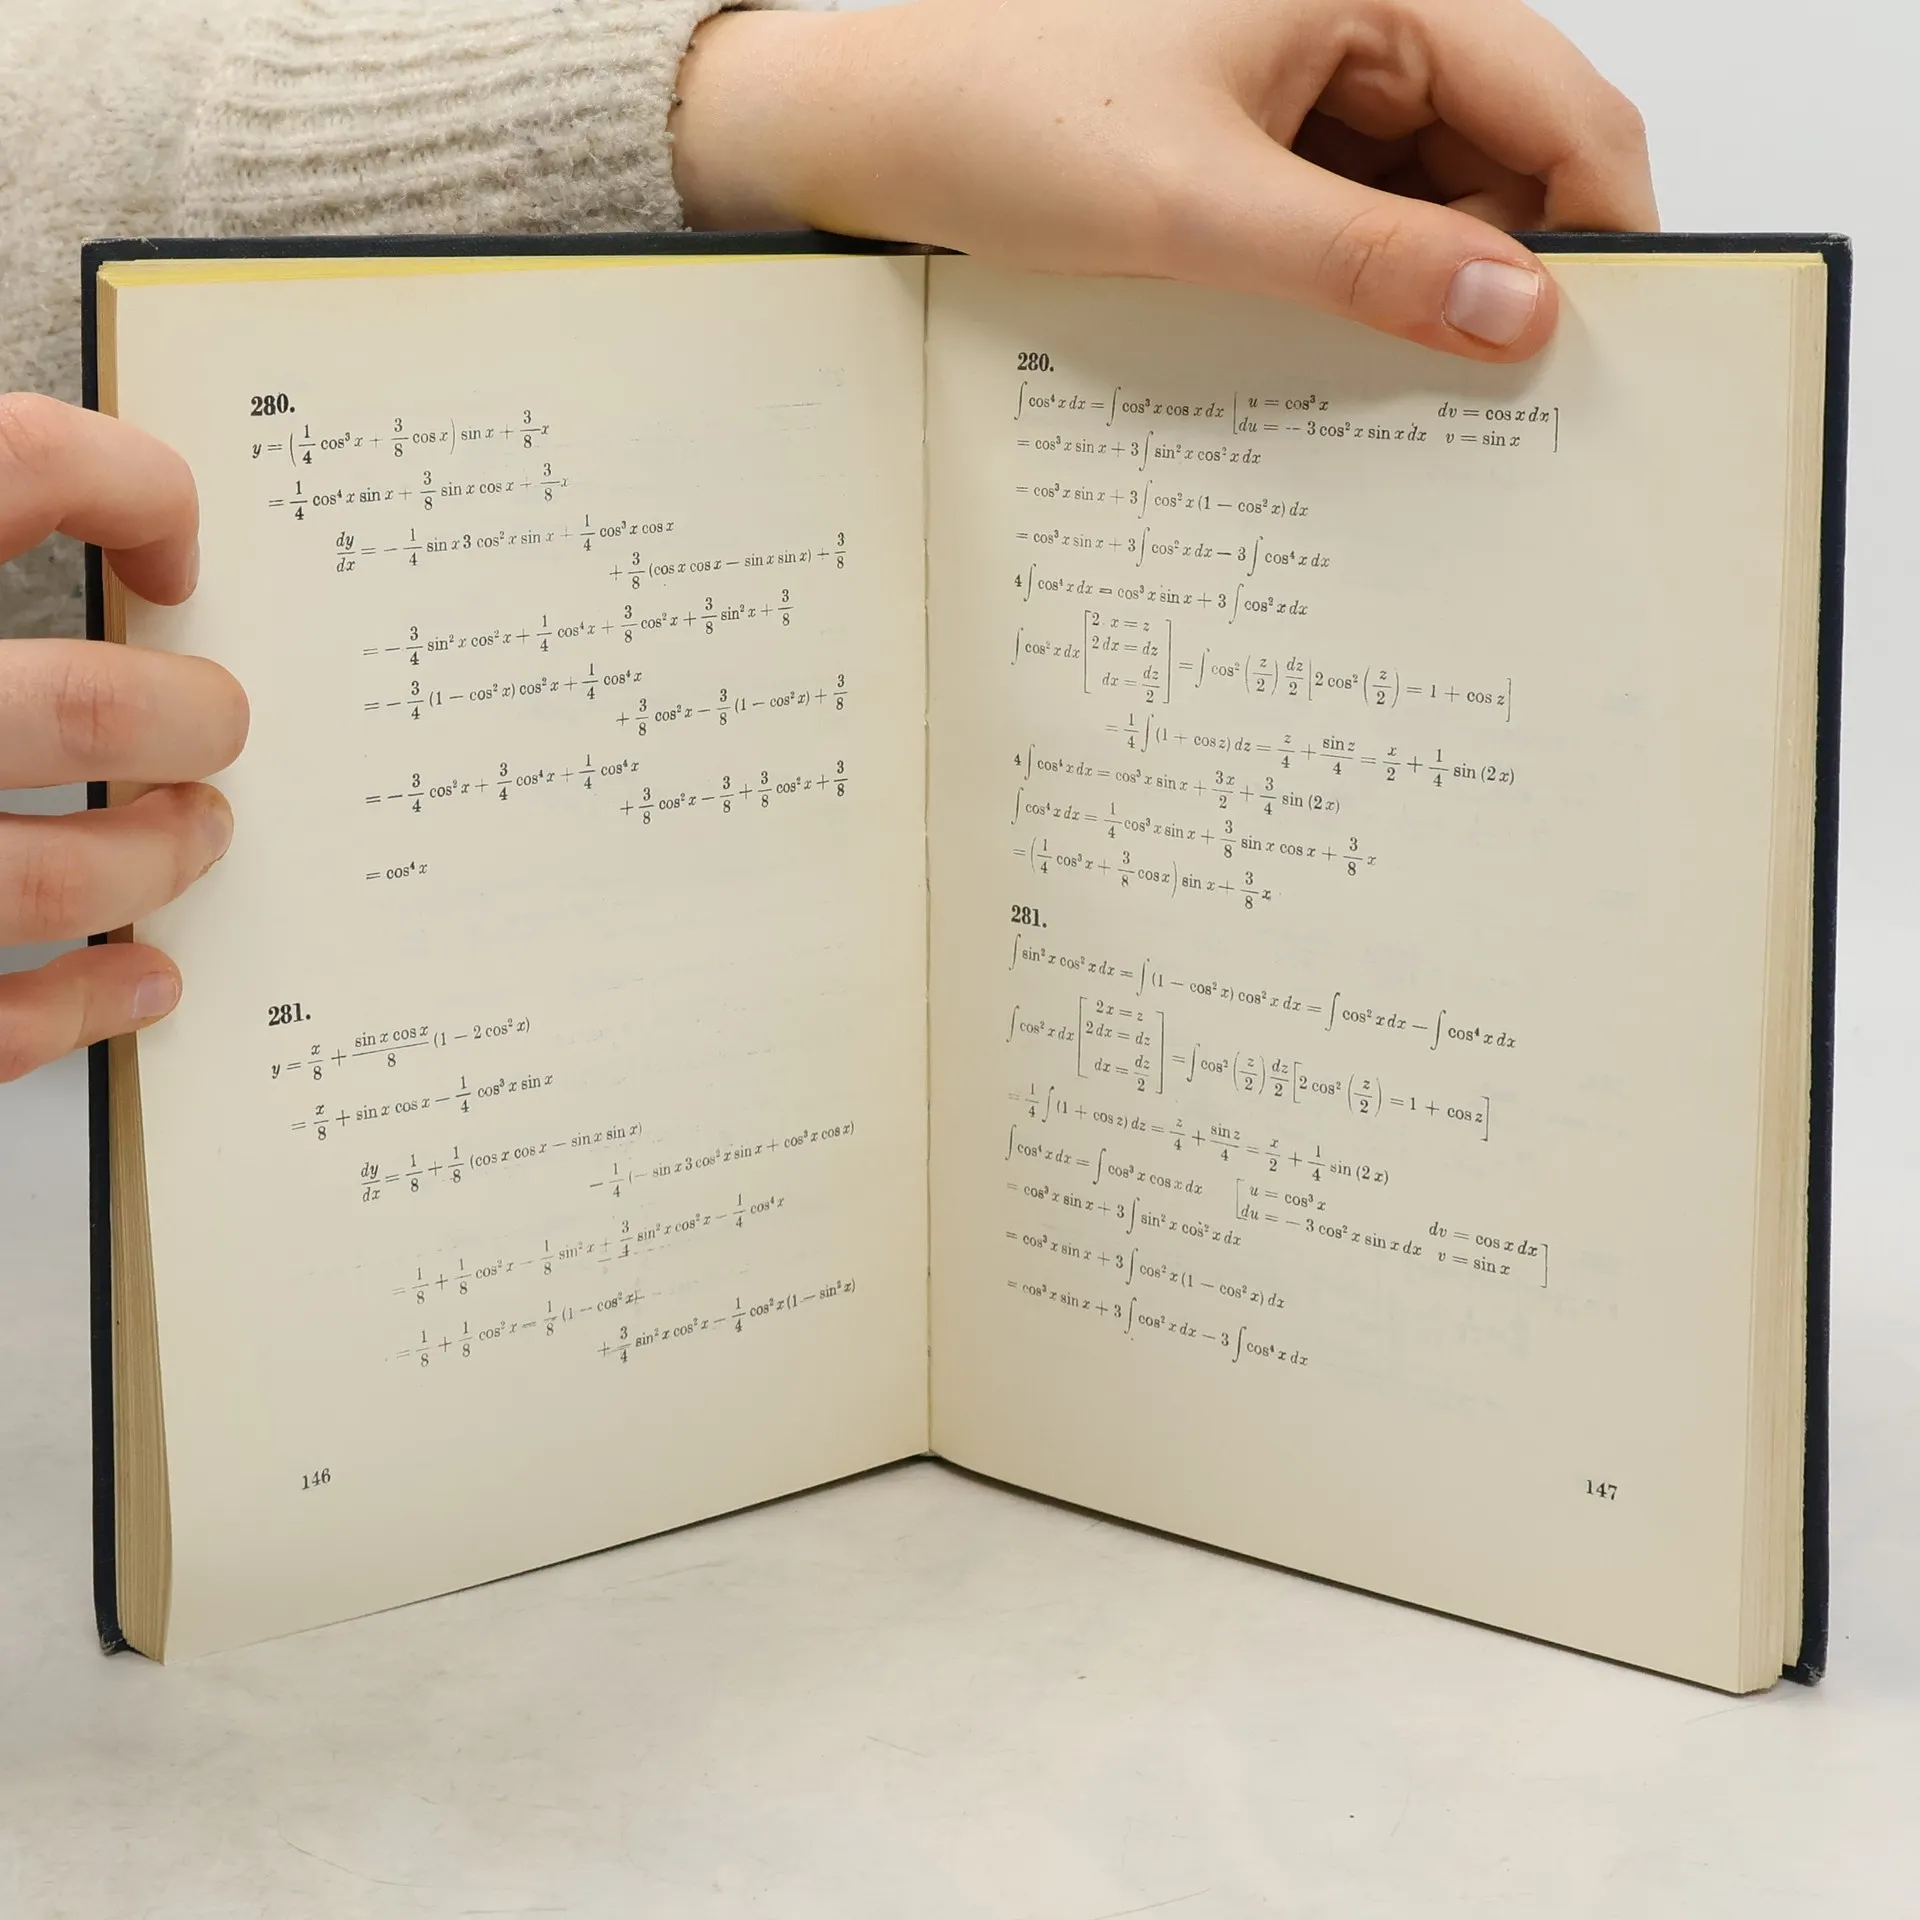 280.
y = (1/4 cos³ x + 3/8 cos x) sin x + 3/8 x
= 1/4 cos⁴ x sin x + 3/8 sin x cos x + 3/8 x
dy/dx = − 1/4 sin x 3 cos² x sin x + 1/4 cos³ x cos x
+ 3/8 (cos x cos x − sin x sin x) + 3/8
= − 3/4 sin² x cos² x + 1/4 cos⁴ x + 3/8 cos² x + 3/8 sin² x + 3/8
= − 3/4 (1 − cos² x) cos² x + 1/4 cos⁴ x
+ 3/8 cos² x − 3/8 (1 − cos² x) + 3/8
= − 3/4 cos² x + 3/4 cos⁴ x + 1/4 cos⁴ x
+ 3/8 cos² x − 3/8 + 3/8 cos² x + 3/8
= cos⁴ x
281.
y = x/8 + sin x cos x/8 (1 − 2 cos² x)
= x/8 + sin x cos x − 1/4 cos³ x sin x
dy/dx = 1/8 + 1/8 (cos x cos x − sin x sin x)
− 1/4 (− sin x 3 cos² x sin x + cos³ x cos x)
= 1/8 + 1/8 cos² x − 1/8 sin² x + 3/4 sin² x cos² x − 1/4 cos⁴ x
= 1/8 + 1/8 cos² x − 1/8 (1 − cos² x)
+ 3/4 sin² x cos² x − 1/4 cos² x (1 − sin² x)
146
280.
∫ cos⁴ x dx = ∫ cos³ x cos x dx [u = cos³ x dv = cos x dx
du = − 3 cos² x sin x dx v = sin x]
= cos³ x sin x + 3 ∫ sin² x cos² x dx
= cos³ x sin x + 3 ∫ cos² x (1 − cos² x) dx
= cos³ x sin x + 3 ∫ cos² x dx − 3 ∫ cos⁴ x dx
4 ∫ cos⁴ x dx = cos³ x sin x + 3 ∫ cos² x dx
∫ cos² x dx [2 x = z
2 dx = dz
dx = dz/2] = ∫ cos² (z/2) dz/2 [2 cos² (z/2) = 1 + cos z]
= 1/4 ∫ (1 + cos z) dz = z/4 + sin z/4 = x/2 + 1/4 sin (2 x)
4 ∫ cos⁴ x dx = cos³ x sin x + 3x/2 + 3/4 sin (2 x)
∫ cos⁴ x dx = 1/4 cos³ x sin x + 3/8 sin x cos x + 3/8 x
= (1/4 cos³ x + 3/8 cos x) sin x + 3/8 x
281.
∫ sin² x cos² x dx = ∫ (1 − cos² x) cos² x dx = ∫ cos² x dx − ∫ cos⁴ x dx
∫ cos² x dx [2x = z
2 dx = dz
dx = dz/2] = ∫ cos² (z/2) dz/2 [2 cos² (z/2) = 1 + cos z]
= 1/4 ∫ (1 + cos z) dz = z/4 + sin z/4 = x/2 + 1/4 sin (2 x)
∫ cos⁴ x dx = ∫ cos³ x cos x dx [u = cos³ x dv = cos x dx
du = − 3 cos² x sin x dx v = sin x]
= cos³ x sin x + 3 ∫ sin² x cos² x dx
= cos³ x sin x + 3 ∫ cos² x (1 − cos² x) dx
= cos³ x sin x + 3 ∫ cos² x dx − 3 ∫ cos⁴ x dx
147